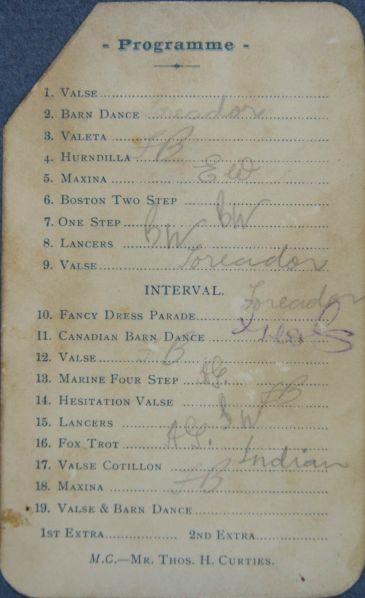 - Programme -
1. Valse
2. Barn Dance Toreador
3. Valeta FB
4. Hurndilla
5. Maxina EW
6. Boston Two Step BW
7. One Step
8. Lancers BW
9. Valse Toreador
INTERVAL.
10. Fancy Dress Parade Toreador
11. Canadian Barn Dance
12. Valse FB
13. Marine Four Step AG.
14. Hesitation Valse FB
15. Lancers BW
16. Fox Trot AG.
17. Valse Cotillon Indian
18. Maxina FB
19. Valse & Barn Dance
1st Extra 2nd Extra
M.C.—Mr. Thos. H. Curties.